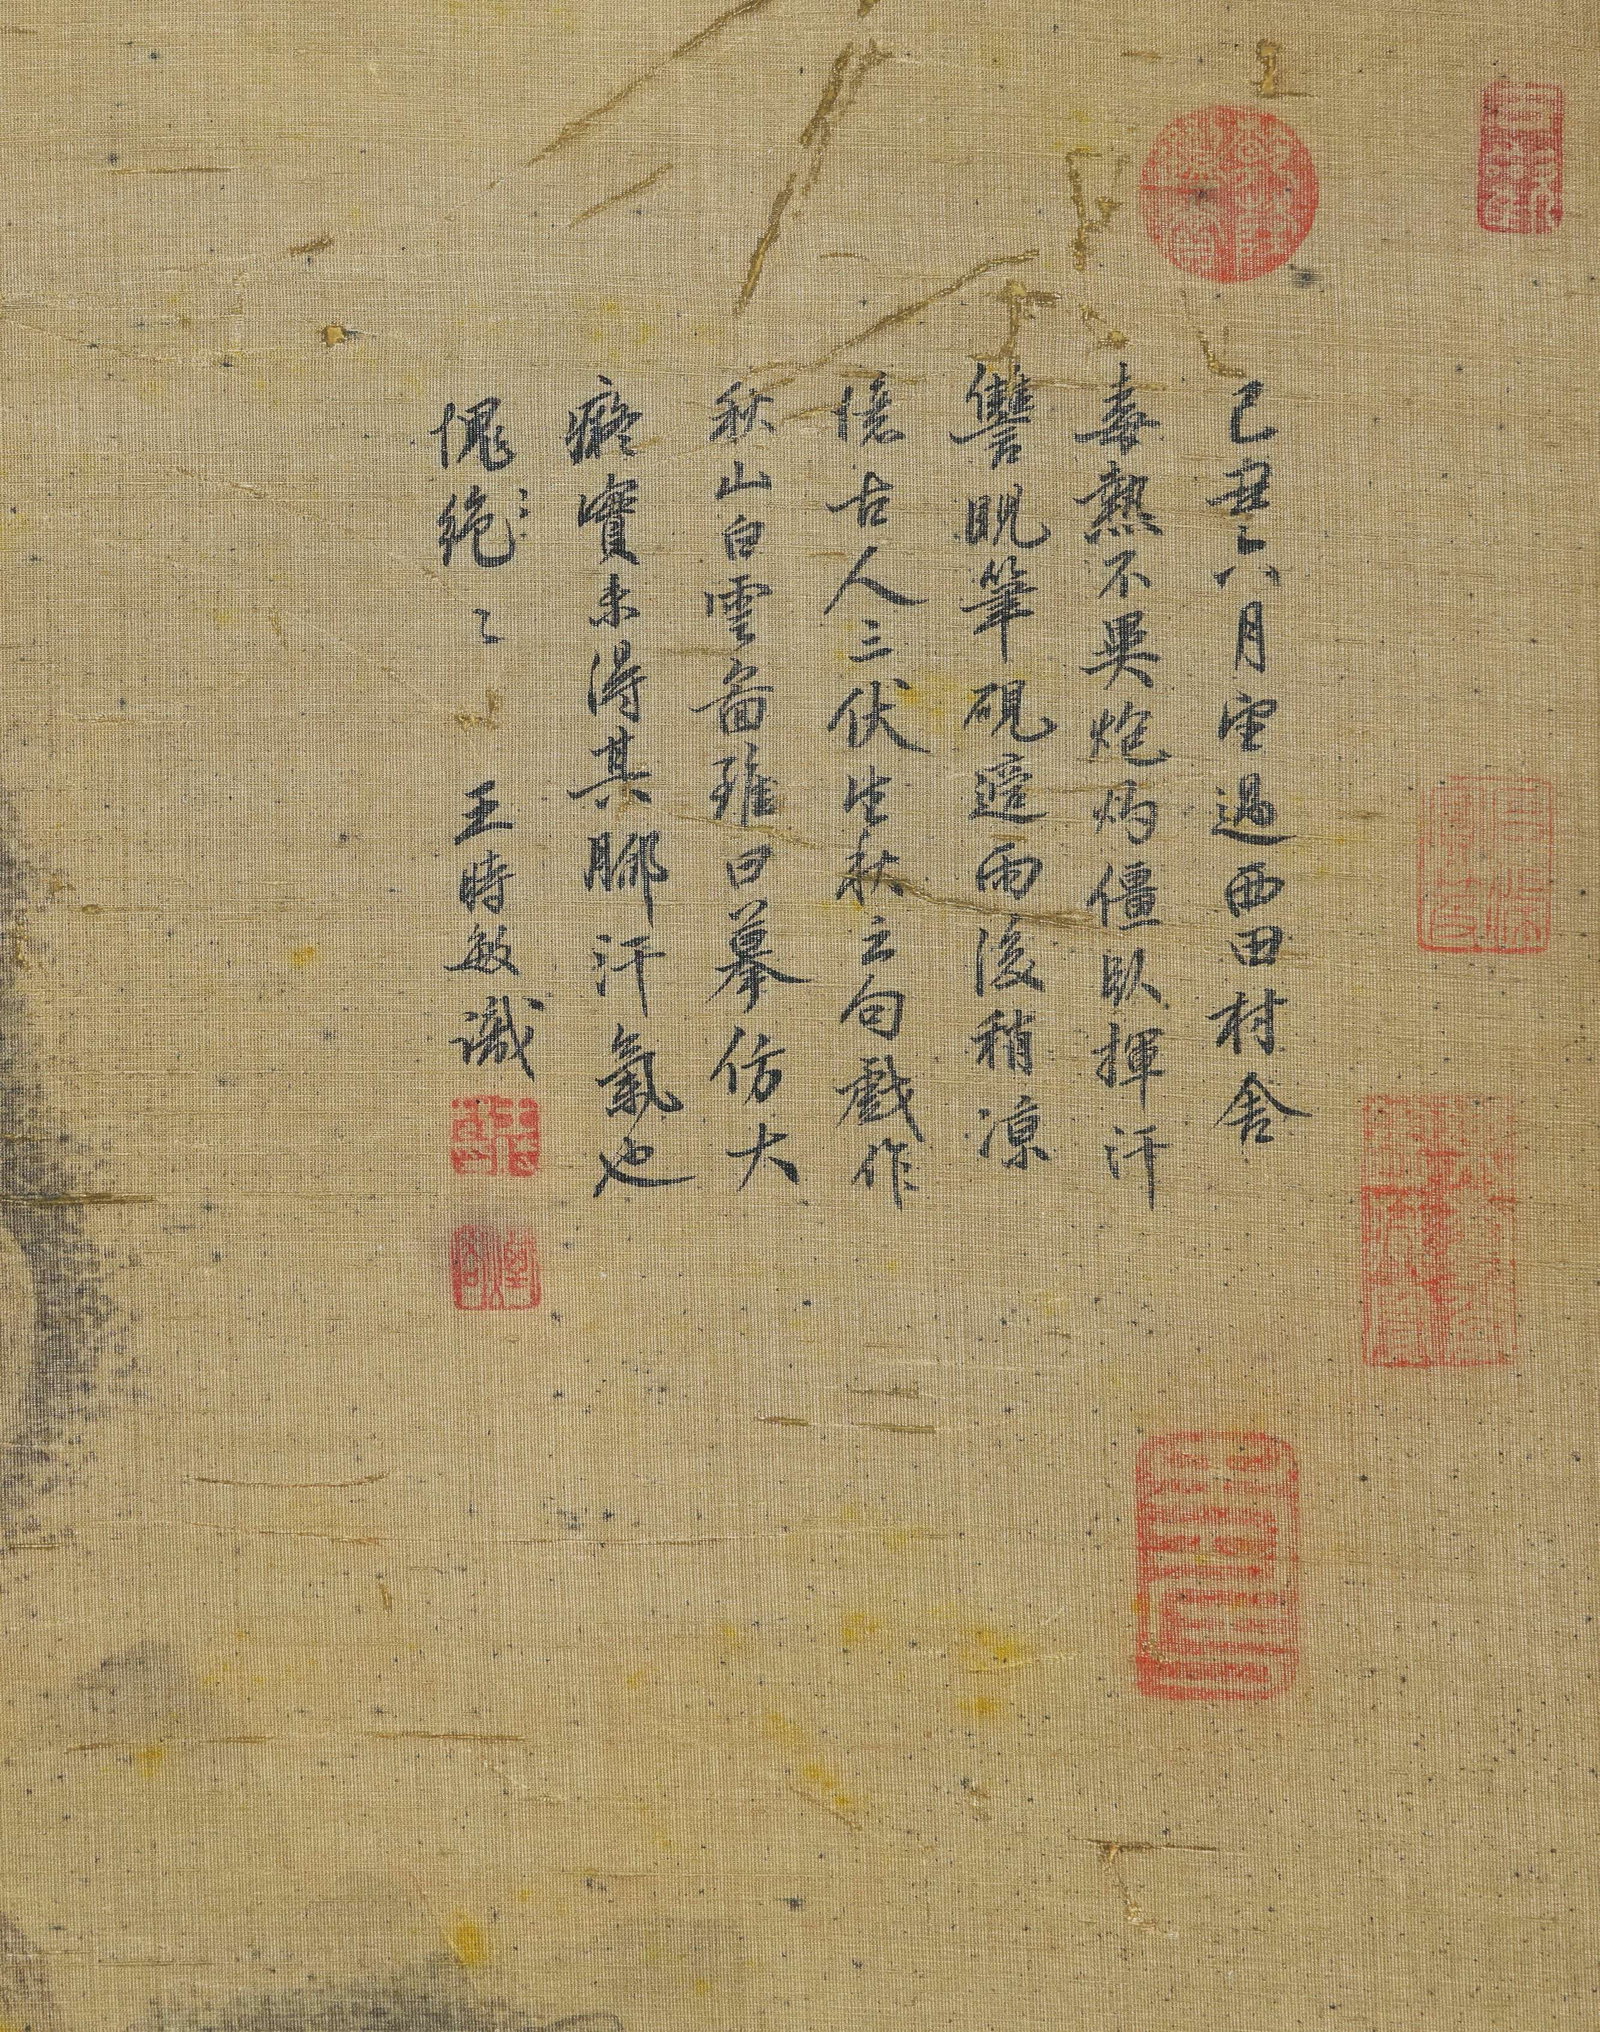 己丑六月望過西田村舍
毒熱不異炮灼僵臥揮汗
讐睨筆硯適雨後稍涼
憶古人三伏生秋之句戲作
秋山白雲圖雖曰摹仿大
癡實未得其腳汗氣也
愧絕〻　王時敏識